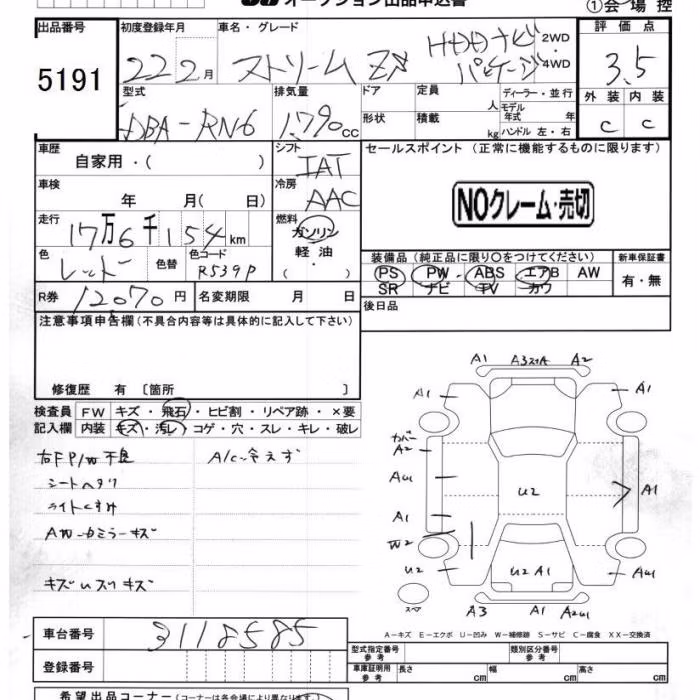 オークション出品申込書
①会場控
出品番号 初度登録年月 車名・グレード 評価点
5191 22 2月 ストリーム ZS HDDナビパッケージ 2WD・4WD 3.5
型式 排気量 ドア 定員 人 ディーラー・並行 外装 内装
DBA-RN6 1,790cc 形状 積載 kg モデル年式 年式 ハンドル 左・右 C C
車歴 自家用・( ) シフト IAT セールスポイント (正常に機能するものに限ります)
車検 年 月( 日) 冷房 AAC
NOクレーム・売切
走行 17万6千154km 燃料 ガソリン 軽油 ( ・ )
色 レッド 色替 色コード R539P
装備品 (純正品に限り○をつけてください) 新車保証書
PS・PW・ABS・エアB AW 有・無
SR ナビ TV カワ
R券 12070円 名変期限 月 日 後日品
注意事項申告欄 (不具合内容等は具体的に記入して下さい)
修復歴 有 〔箇所 〕
検査員 FW キズ・飛石・ヒビ割・リペア跡・×要
記入欄 内装 キズ・汚レ・コゲ・穴・スレ・キレ・破レ
右F P/W不良 A/C冷えず
シートヘタリ
ライトくすみ
AW
キズ
A1 A3 A2
A1 A1
カバー
A2
AU1
A1 U2 A1
W2
U2 U2 A1 AU1
スペア A3 A1 A2
A-キズ E-エクボ U-凹み W-補修跡 S-サビ C-腐食 XX-交換済
車台番号 3118585
登録番号
型式指定番号 参考 類別区分番号 参考
車庫証明用 参考 長さ cm 幅 cm 高さ cm
希望出品コーナー (コーナーは各会場により異なります)